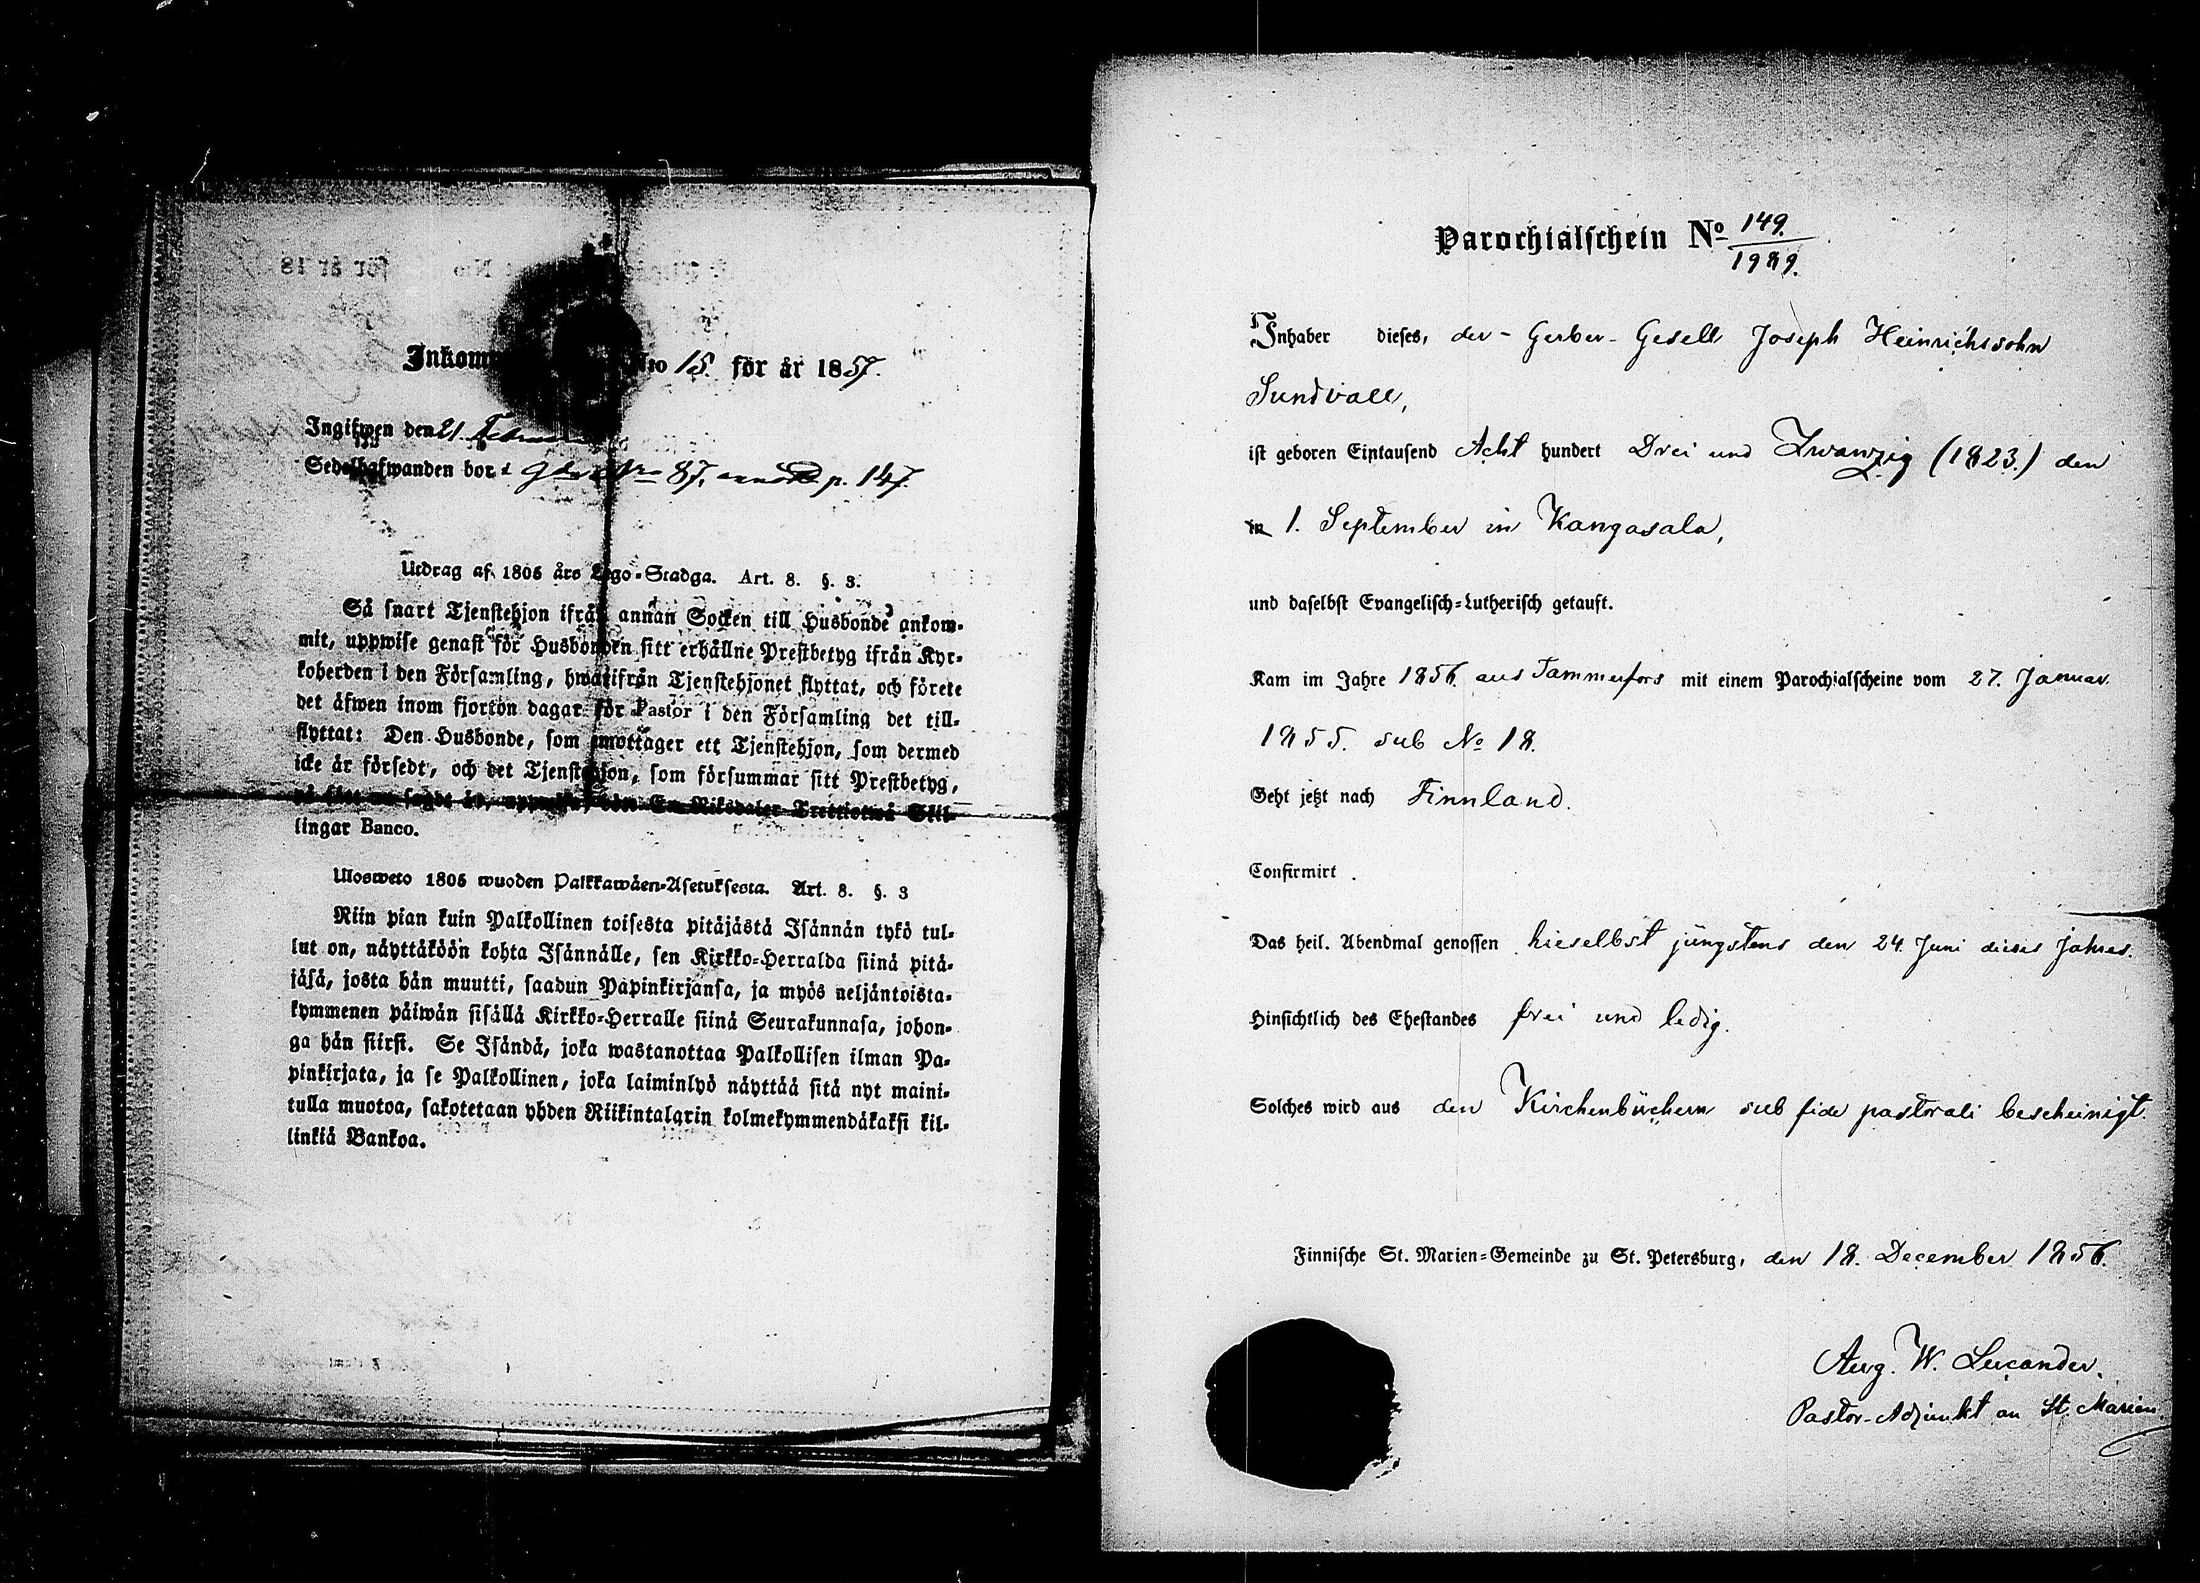 Inkom No 15. för år 1857.
Ingifwen den 21. Februa
Sedelhafwanden bor i No 87, p. 147.
Utdrag af 1805 års Lego-Stadga. Art. 8. §. 3.
Så snart Tjenstehjon ifrån annan Socken till Husbonde ankom-
mit, uppwise genast för Husbonden sitt erhållne Prestbetyg ifrån Kyr-
koherden i den Församling, hwarifrån Tjenstehjonet flyttat, och förete
det äfwen inom fjorton dagar för Pastor i den Församling det till-
flyttat: Den Husbonde, som emottager ett Tjenstehjon, som dermed
icke är försedt, och det Tjenstehjon, som försummar sitt Prestbetyg,
på sätt nu sagdt är, uppwisa, böte En Riksdaler Trettiotwå Skil-
lingar Banco.
Ulosweto 1805 wuoden Palkkawäen-Asetuksesta. Art. 8. §. 3
Niin pian kuin Palkollinen toisesta pitäjästä Isännän tykö tul-
lut on, näyttäköön kohta Isännälle, sen Kirkko-Herralda siinä pitä-
jäsä, josta hän muutti, saadun Papinkirjansa, ja myös neljäntoista-
kymmenen päiwän sisällä Kirkko-Herralle siinä Seurakunnasa, johon-
ga hän siirst. Se Isändä, joka wastanottaa Palkollisen ilman Pa-
pinkirjata, ja se Palkollinen, joka laiminlyö näyttää sitä nyt maini-
tulla muotoa, sakotetaan yhden Riikintalarin kolmekymmendäkaksi kil-
linkiä Bankoa.
Parochialschein No 149.
1989.
Inhaber dieses, der Gerber-Gesell Joseph Heinrichssohn
Sundvall,
ist geboren Eintausend Acht hundert Drei und Zwanzig (1823.) den
in 1. September in Kangasala,
und daselbst Evangelisch-Lutherisch getauft.
Kam im Jahre 1856. aus Tammerfors mit einem Parochialscheine vom 27. Januar
1855. sub No 18.
Geht jetzt nach Finnland.
Confirmirt
Das heil. Abendmal genossen hieselbst jüngstens den 24. Juni dieses Jahres.
Hinsichtlich des Ehestandes frei und ledig.
Solches wird aus den Kirchenbüchern sub fide pastorali bescheinigt.
Finnische St. Marien-Gemeinde zu St. Petersburg, den 18. December 1856.
Aug. W. Lucander.
Pastor-Adjunkt an St. Marien.